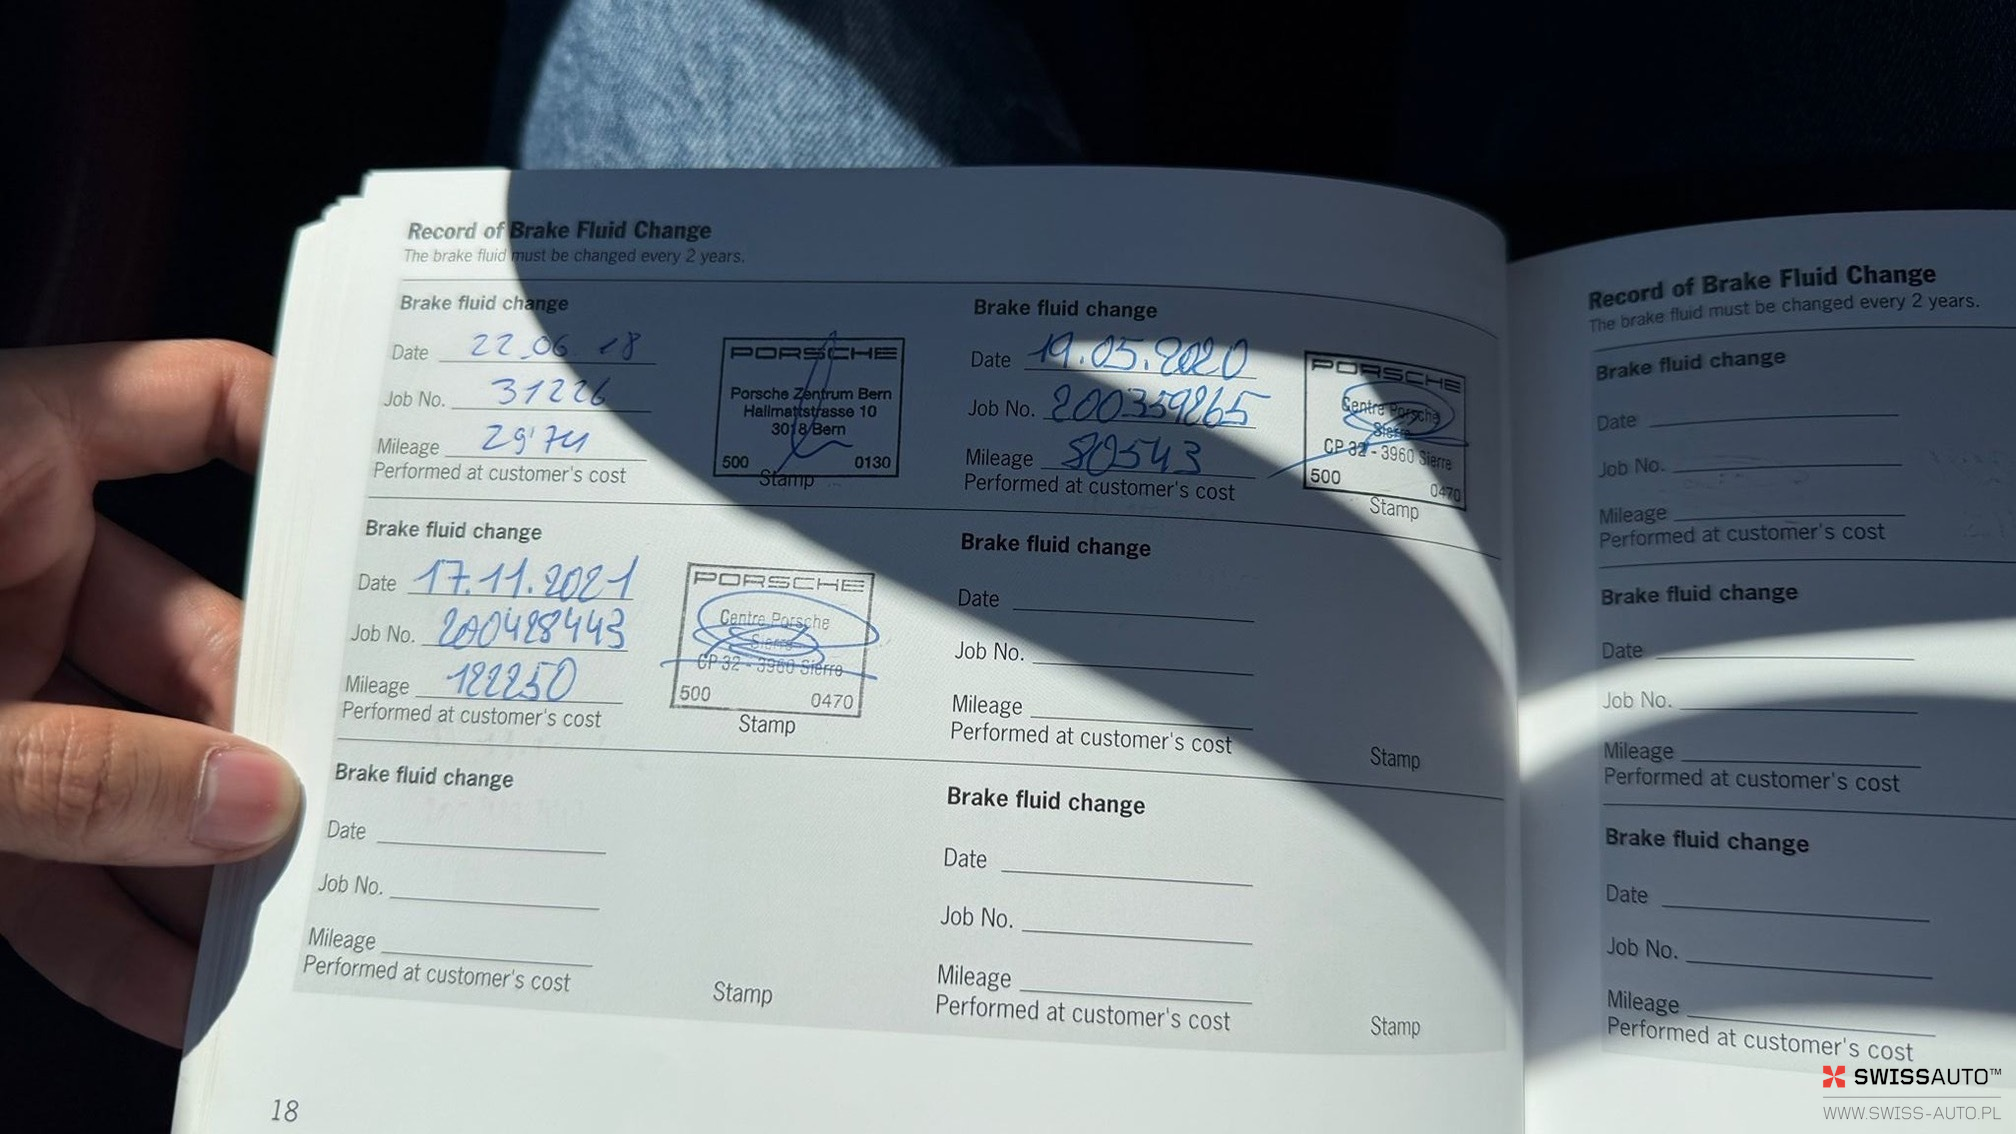 Record of Brake Fluid Change
The brake fluid must be changed every 2 years.
Brake fluid change
Date 22.06.18
Job No. 31226
Mileage
Performed at customer's cost
PORSCHE
Porsche Zentrum Bern
Hallmattstrasse 10
3018 Bern
500 0130
Stamp
Brake fluid change
Date 19.05.2020
Job No. 200359265
Mileage 80543
Performed at customer's cost
PORSCHE
Centre Porsche
Sierre
CP 32 - 3960 Sierre
500 0470
Stamp
Brake fluid change
Date 17.11.2021
Job No. 200428443
Mileage 122250
Performed at customer's cost
PORSCHE
Centre Porsche
Sierre
CP 32 - 3960 Sierre
500 0470
Stamp
Brake fluid change
Date
Job No.
Mileage
Performed at customer's cost
Stamp
Brake fluid change
Date
Job No.
Mileage
Performed at customer's cost
Stamp
Brake fluid change
Date
Job No.
Mileage
Performed at customer's cost
Stamp
18
Record of Brake Fluid Change
The brake fluid must be changed every 2 years.
Brake fluid change
Date
Job No.
Mileage
Performed at customer's cost
Brake fluid change
Date
Job No.
Mileage
Performed at customer's cost
Brake fluid change
Date
Job No.
Mileage
Performed at customer's cost
SWISSAUTO™
WWW.SWISS-AUTO.PL